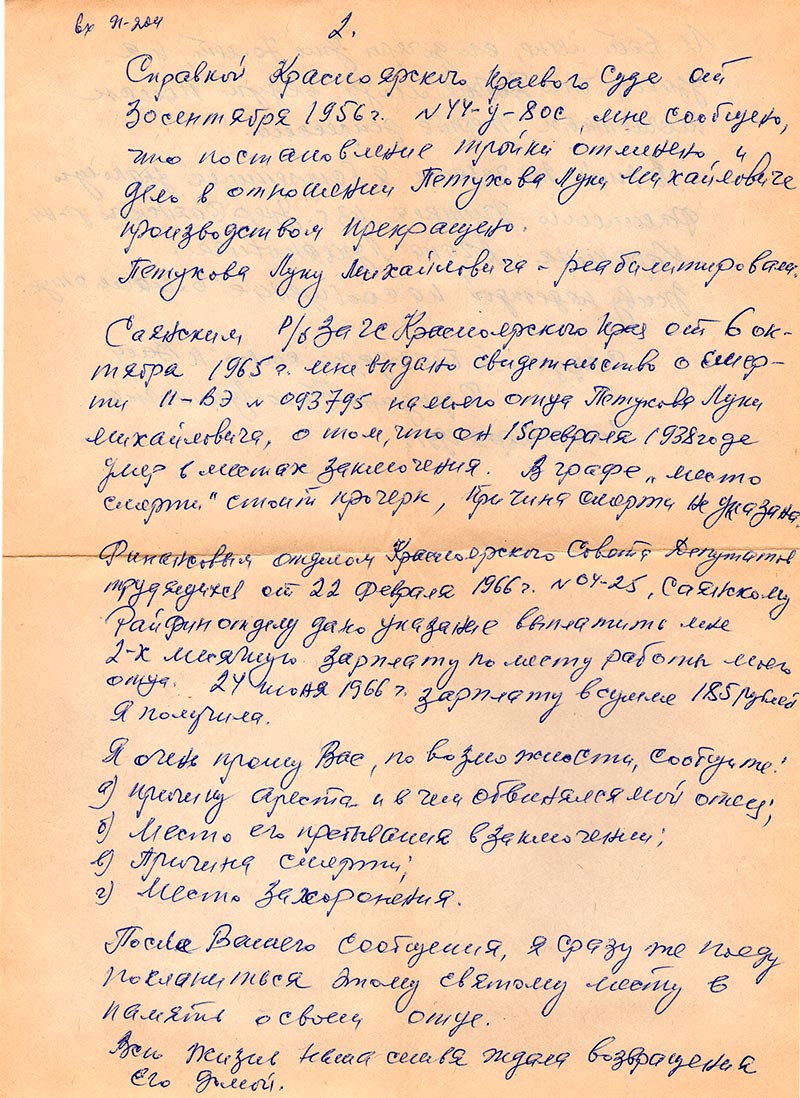 вх П-204
2.
Справкой Красноярского Краевого Суда от
30 сентября 1956 г. N 44-у-80с, мне сообщено,
что постановление тройки отменено, и
дело в отношении Петухова Луки Михайловича
производством прекращено.
Петухова Луку Михайловича - реабилитировали.
Саянским Р/б Загс Красноярского Края от 6 ок-
тября 1965 г. мне выдано свидетельство о смер-
ти II-ВЭ N 093795 на моего отца Петухова Луки
Михайловича, о том, что он 15 февраля 1938 года
умер в местах заключения. В графе „место
смерти" стоит прочерк, Причина смерти не указана.
Финансовым отделом Красноярского Совета Депутатов
трудящихся от 22 Февраля 1966 г. N 04-25, Саянскому
Райфинотделу дано указание выплатить мне
2-х месячную зарплату по месту работы моего
отца. 24 июня 1966 г. зарплату в сумме 185 рублей
Я получила.
Я очень прошу Вас, по возможности, сообщите:
а) причину ареста и в чем обвинялся мой отец;
б) Место его пребывания в заключении;
в) Причина смерти;
г) Место Захоронения.
После Вашего сообщения, я сразу же поеду
поклониться этому святому месту в
память о своем отце.
Всю жизнь наша семья ждала возвращения
его домой.